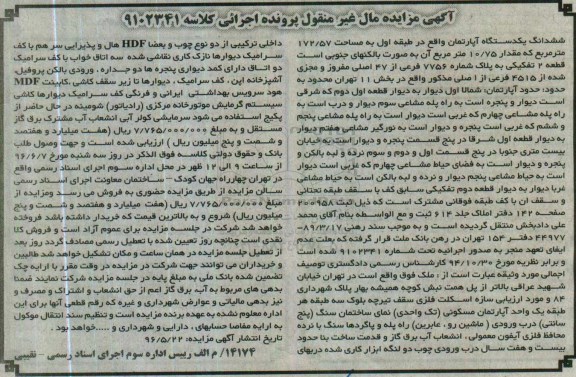 آگهی مزایده مال غیر منقول پرونده اجرائی کلاسه ۹۱۰۲۳۴۱
ششدانگ یکدستگاه آپارتمان واقع در طبقه اول به مساحت ۱۷۲/۵۷
مترمربع که مقدار ۱۰/۷۵ متر مربع آن به صورت بالکنهای جنوبی است
قطعه ۲ تفکیکی به پلاک شماره ۷۷۵۶ فرعی از ۴۷ اصلی مفروز و مجزی
شده از ۴۵۱۵ فرعی از اصلی مذکور واقع در بخش ۱۱ تهران محدود به
حدود: حدود آپارتمان: شمالا اول دیوار به دیوار قطعه اول دوم که شرقی
است دیوار و پنجره است به راه پله مشاعی سوم دیوار و درب است به
راه پله مشاعی چهارم که غربی است دیوار است به راه پله مشاعی پنجم
و ششم که غربی است پنجره و دیوار است به نورگیر مشاعی هفتم دیوار
به دیوار قطعه اول شرقا در پنج قسمت پنجره و دیوار است به خیابان
بیست متری جنوبا در پنج قسمت اول و دوم و سوم نرده و لبه بالکن و
پنجره و دیوار است به فضای حیاط مشاعی چهارم که غربی است دیوار
است به حیاط مشاعی پنجم دیوار و نرده و لبه بالکن است به حیاط مشاعی
غربا دیوار به دیوار قطعه دوم تفکیکی سابق کف با سقف طبقه تحتانی
و سقف آن با کف طبقه فوقانی مشترک است که ذیل ثبت ۲۰۹۵۸
صفحه ۱۴۲ دفتر املاک جلد ۶۱۳ ثبت و مع الواسطه بنام آقای محمد
علی دادبخش منتقل گردیده است و به موجب سند رهنی ۸۹/۳/۱۷-
۲۴۹۷۷ دفتر ۱۵۴ تهران در رهن بانک ملت قرار گرفته که بعلت عدم
ایفای تعهد منجر به صدور اجرائیه تحت شماره ۹۱۰۲۳۴۱ شده است
و برابر نظریه مورخ ۹۴/۱۰/۳۰ کارشناس رسمی دادگستری توصیف
اجمالی مورد وثیقه عبارت است از : ملک فوق واقع است در تهران خیابان
شهید عراقی بالاتر از پل همت نبش کوچه همیشه بهار پلاک شهرداری
۸۴ و مورد ارزیابی سازه اسکلت فلزی سقف تیرچه بلوک سه طبقه هر
طبقه یک واحد آپارتمان مسکونی (تک واحدی) نمای ساختمان سنگ (پنج
سانتی) درب ورودی ( ماشین رو ، عابرین) راه پله و پاگردها سنگ با نرده
محافظ فلزی آیفون معمولی ، انشعاب آب برق گاز و قدمت ساخت بنا حدود
بیست و هفت سال درب ورودی چوب دو لنگه ابزار کاری شده دربهای
داخلی ترکیبی از دو نوع چوب و بعضا HDF هال و پذیرایی سر هم با کف
سرامیک دیوارها نازک کاری نقاشی شده سه اتاق خواب با کف سرامیک
دو اتاق دارای کمد دیواری پنجره ها دو جداره ، ورودی بالکن پروفیل،
آشپزخانه اپن ، کف سرامیک ، دیوارها تا زیر سقف کاشی، کابینت MDF
هود سرویس بهداشتی ایرانی و فرنگی کف سرامیک دیوارها کاشی
سیستم گرمایش موتورخانه مرکزی (رادیاتور) شومینه در حال حاضر از
پکیج استفاده می شود سرمایشی کولر آبی انشعاب آب مشترک برق گاز
مستقل و به مبلغ ۷/۷۶۵/۰۰۰/۰۰۰ ریال (هفت میلیارد و هفتصد
و شصت و پنج میلیون ریال ) ارزیابی شده است و جهت وصول طلب
بانک و حقوق دولتی کلاسه فوق الذکر در روز سه شنبه مورخ ۹۶/۶/۷
از ساعت ۹ الی ۱۲ ظهر در محل اداره سوم اجرای اسناد رسمی واقع
در تهران چهارراه جهان کودک – ساختمان معاونت اجرای اسناد رسمی
سالن مزایده از طریق مزایده حضوری به فروش می رسد و مزایده از
مبلغ ۷/۷۶۵/۰۰۰/۰۰۰ ریال (هفت میلیارد و هفتصد و شصت و پنج
میلیون ریال) شروع و به بالاترین قیمت که خریدار داشته باشد فروخته
خواهد شد شرکت در جلسه مزایده برای عموم آزاد است و فروش کلا
نقدی است چنانچه روز تعیین شده با تعطیل رسمی مصادف گردد روز بعد
از تعطیل جلسه مزایده در همان ساعت و مکان تشکیل خواهد شد طالبین
و خریداران می توانند جهت شرکت در مزایده در وقت مقرر با ارایه چک
تضمین شده بانک ملی به مبلغ پایه در جلسه مزایده شرکت نمایند ضمنا
بدهی های مربوط به آب، برق گاز اعم از حق انشعاب و اشتراک و مصرف و
نیز بدهی مالیاتی و عوارض شهرداری و غیره که رقم قطعی آنها برای این
اداره معلوم نشده به عهده برنده مزایده است و تنظیم سند انتقال موکول
به ارایه مفاصا حسابهای ، دارایی و شهرداری و .....خواهد بود .
تاریخ انتشار آگهی مزایده: ۹۶/۵/۲۲
۱۴۱۷۴/ م الف رییس اداره سوم اجرای اسناد رسمی – نقیبی